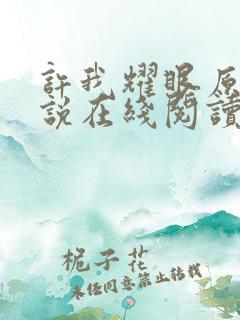 許我耀眼原
說在綫閱讀
栀子花
未经同意禁止转载